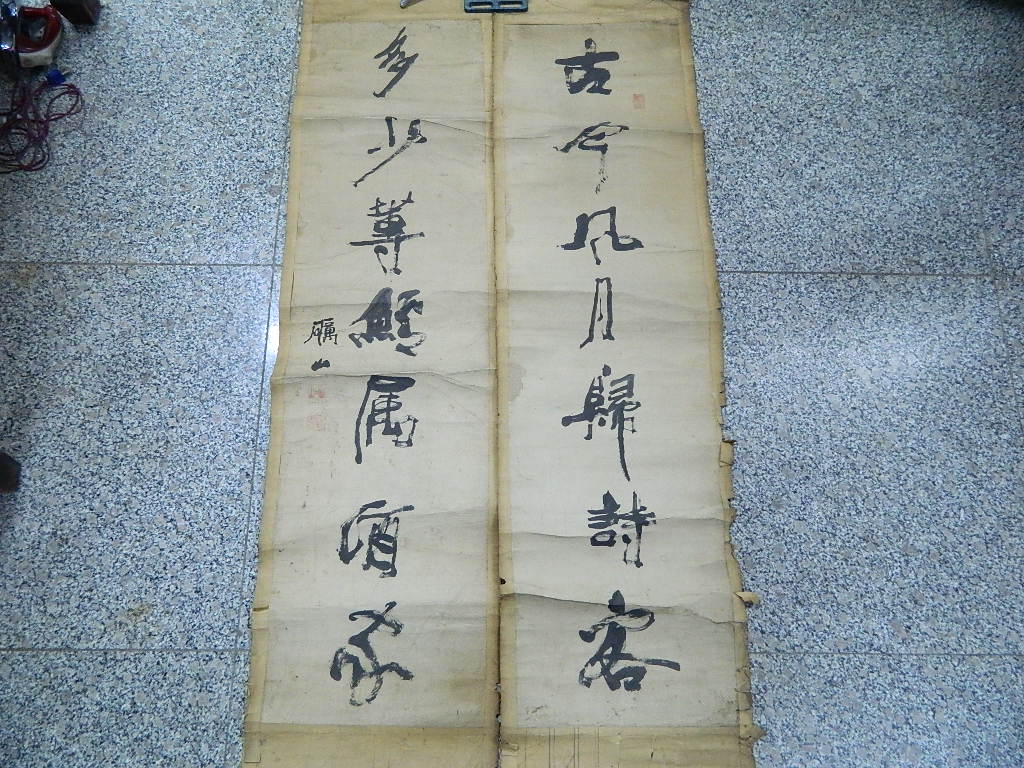 古今風月歸詩客
多少蓴鱸属酒家
礪山